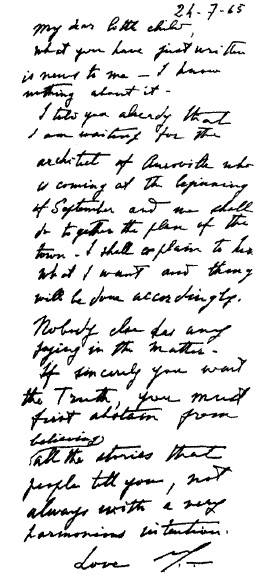 24-7-65
My dear little child,
what you have just written
is news to me - I know
nothing about it -
I told you already that
I am waiting for the
architect of Auroville who
is coming at the beginning
of September and we shall
do together the plan of the
town - I shall explain to him
what I want and things
will be done accordingly.
Nobody else has any
saying in the matter -
If sincerely you want
the Truth, you must
first abstain from
believing
all the stories that
people tell you, not
always with a very
harmonious intention.
Love